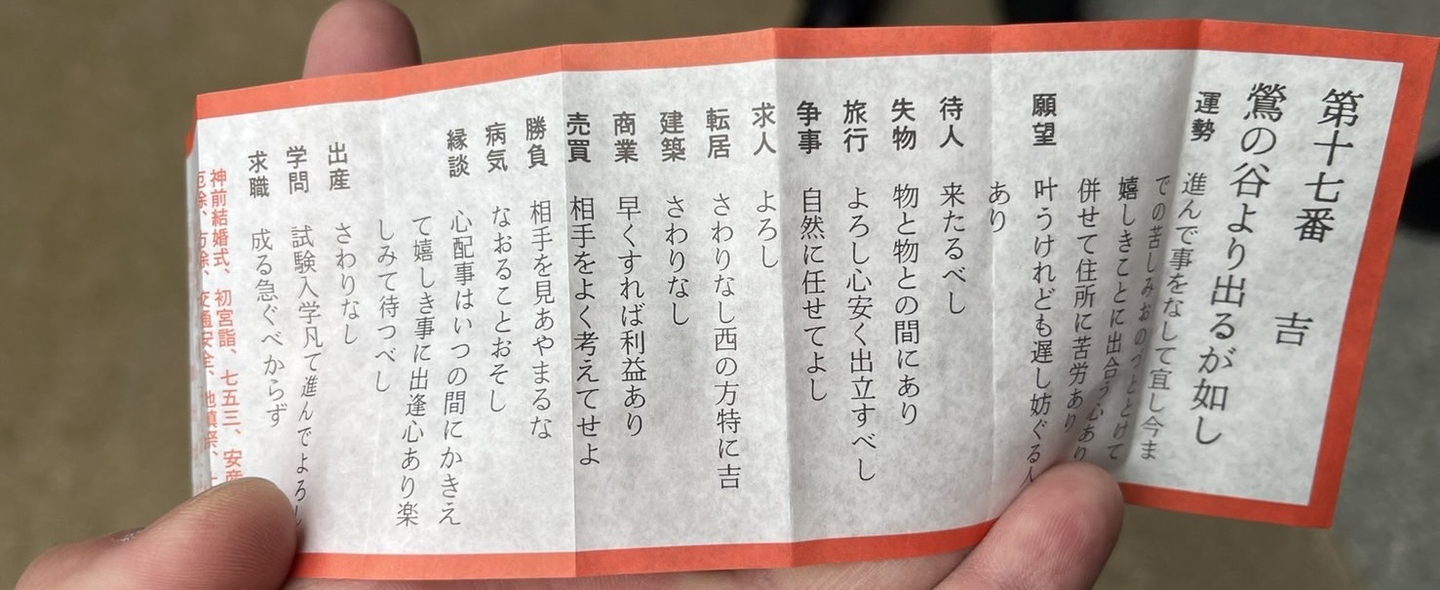 第十七番 吉
鶯の谷より出るが如し
運勢 進んで事をなして宜し今ま
での苦しみおのづととけて
嬉しきことに出合う心あり
併せて住所に苦労あり
願望 叶うけれども遅し妨ぐる人
あり
待人 来たるべし
失物 物と物との間にあり
旅行 よろし心安く出立すべし
争事 自然に任せてよし
求人 よろし
転居 さわりなし西の方特に吉
建築 さわりなし
商業 早くすれば利益あり
売買 相手をよく考えてせよ
勝負 相手を見あやまるな
病気 なおることおそし
縁談 心配事はいつの間にかきえ
て嬉しき事に出逢心あり楽
しみて待つべし
出産 さわりなし
学問 試験入学凡て進んでよろし
求職 成る急ぐべからず
神前結婚式、初宮詣、七五三、安産
厄除、方除、交通安全、地鎮祭、上